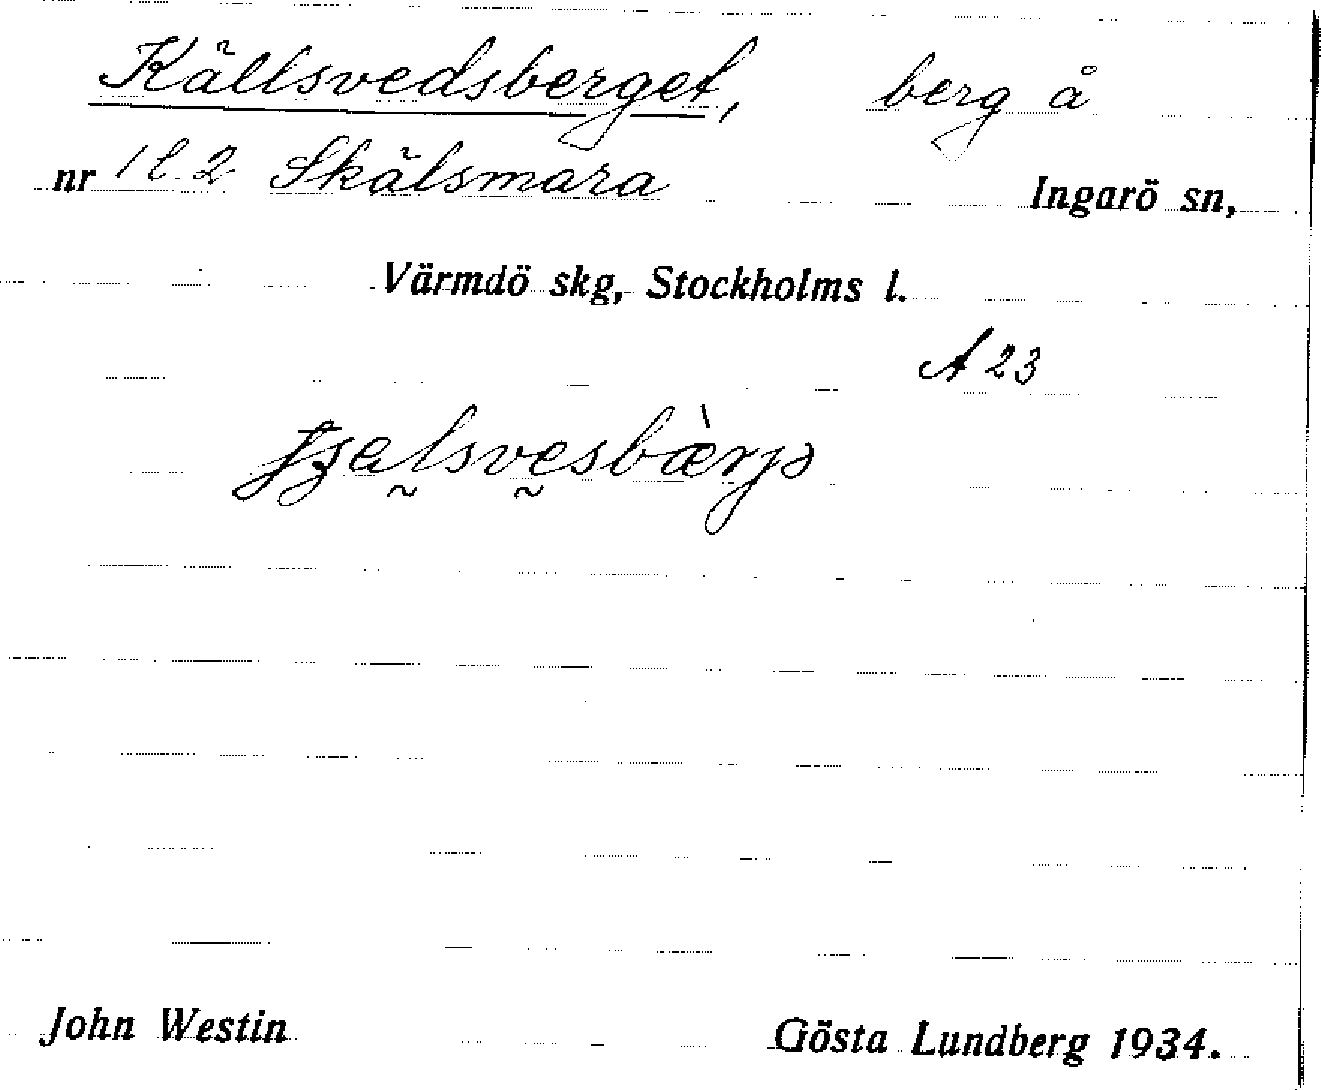 Källsvedsberget, berg å
nr 1 l. 2 Skälsmara Ingarö sn,
Värmdö skg, Stockholms l.
A 23
John Westin Gösta Lundberg 1934.